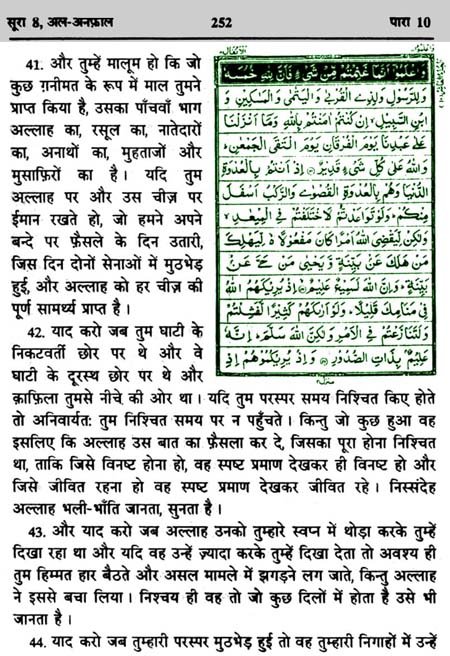 सूरा 8, अल-अनफ़ाल 252 पारा 10
41. और तुम्हें मालूम हो कि जो
कुछ ग़नीमत के रूप में माल तुमने
प्राप्त किया है, उसका पाँचवाँ भाग
अल्लाह का, रसूल का, नातेदारों
का, अनाथों का, मुहताजों और
मुसाफ़िरों का है। यदि तुम
अल्लाह पर और उस चीज़ पर
ईमान रखते हो, जो हमने अपने
बन्दे पर फ़ैसले के दिन उतारी,
जिस दिन दोनों सेनाओं में मुठभेड़
हुई, और अल्लाह को हर चीज़ की
पूर्ण सामर्थ्य प्राप्त है।
42. याद करो जब तुम घाटी के
निकटवर्ती छोर पर थे और वे
घाटी के दूरस्थ छोर पर थे और
وَاعْلَمُوْٓا اَنَّمَا غَنِمْتُمْ مِّنْ شَيْءٍ فَاَنَّ لِلّٰهِ خُمُسَهٗ
وَلِلرَّسُوْلِ وَلِذِي الْقُرْبٰى وَالْيَتٰمٰى وَالْمَسٰكِيْنِ وَ
ابْنِ السَّبِيْلِ اِنْ كُنْتُمْ اٰمَنْتُمْ بِاللّٰهِ وَمَآ اَنْزَلْنَا
عَلٰى عَبْدِنَا يَوْمَ الْفُرْقَانِ يَوْمَ الْتَقَى الْجَمْعٰنِ
وَاللّٰهُ عَلٰى كُلِّ شَيْءٍ قَدِيْرٌ اِذْ اَنْتُمْ بِالْعُدْوَةِ
الدُّنْيَا وَهُمْ بِالْعُدْوَةِ الْقُصْوٰى وَالرَّكْبُ اَسْفَلَ
مِنْكُمْ وَلَوْ تَوَاعَدْتُّمْ لَاخْتَلَفْتُمْ فِي الْمِيْعٰدِ
وَلٰكِنْ لِّيَقْضِيَ اللّٰهُ اَمْرًا كَانَ مَفْعُوْلًا لِّيَهْلِكَ
مَنْ هَلَكَ عَنْۢ بَيِّنَةٍ وَّيَحْيٰى مَنْ حَيَّ عَنْۢ
بَيِّنَةٍ وَاِنَّ اللّٰهَ لَسَمِيْعٌ عَلِيْمٌ اِذْ يُرِيْكَهُمُ اللّٰهُ
فِيْ مَنَامِكَ قَلِيْلًا وَلَوْ اَرٰىكَهُمْ كَثِيْرًا لَّفَشِلْتُمْ
وَلَتَنَازَعْتُمْ فِي الْاَمْرِ وَلٰكِنَّ اللّٰهَ سَلَّمَ اِنَّهٗ
عَلِيْمٌۢ بِذَاتِ الصُّدُوْرِ وَاِذْ يُرِيْكُمُوْهُمْ اِذِ
क़ाफ़िला तुमसे नीचे की ओर था। यदि तुम परस्पर समय निश्चित किए होते
तो अनिवार्यतः तुम निश्चित समय पर न पहुँचते। किन्तु जो कुछ हुआ वह
इसलिए कि अल्लाह उस बात का फ़ैसला कर दे, जिसका पूरा होना निश्चित
था, ताकि जिसे विनष्ट होना हो, वह स्पष्ट प्रमाण देखकर ही विनष्ट हो और
जिसे जीवित रहना हो वह स्पष्ट प्रमाण देखकर जीवित रहे। निस्संदेह
अल्लाह भली-भाँति जानता, सुनता है।
43. और याद करो जब अल्लाह उनको तुम्हारे स्वप्न में थोड़ा करके तुम्हें
दिखा रहा था और यदि वह उन्हें ज़्यादा करके तुम्हें दिखा देता तो अवश्य ही
तुम हिम्मत हार बैठते और असल मामले में झगड़ने लग जाते, किन्तु अल्लाह
ने इससे बचा लिया। निश्चय ही वह तो जो कुछ दिलों में होता है उसे भी
जानता है।
44. याद करो जब तुम्हारी परस्पर मुठभेड़ हुई तो वह तुम्हारी निगाहों में उन्हें